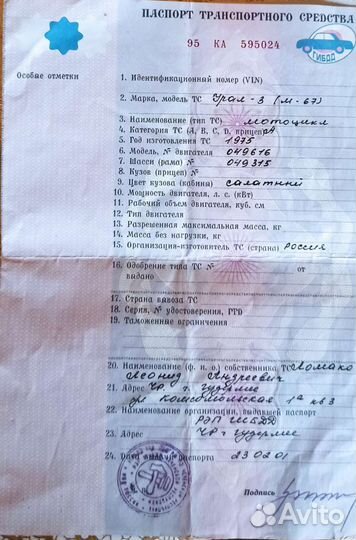 ПАСПОРТ ТРАНСПОРТНОГО СРЕДСТВА
ГИБДД
95 КА 595024
Особые отметки
1. Идентификационный номер (VIN)
2. Марка, модель ТС Урал-3 (М-67)
3. Наименование (тип ТС) мотоцикл
4. Категория ТС (A, B, C, D, прицеп) A
5. Год изготовления ТС 1975
6. Модель, № двигателя 049616
7. Шасси (рама) № 049315
8. Кузов (прицеп) №
9. Цвет кузова (кабина) салатный
10. Мощность двигателя, л. с. (кВт)
11. Рабочий объем двигателя, куб. см
12. Тип двигателя
13. Разрешенная максимальная масса, кг
14. Масса без нагрузки, кг
15. Организация-изготовитель ТС (страна) Россия
16. Одобрение типа ТС № от
выдано
17. Страна вывоза ТС
18. Серия, № удостоверения, ГТД
19. Таможенные ограничения
20. Наименование (ф. и. о.) собственника ТС Ломако
Леонид Андреевич
21. Адрес ЧР. г. Гудермес
ул. Комсомольская 1а кв 3
22. Наименование организации, выдавшей паспорт
РЭП ГИБДД
23. Адрес ЧР г Гудермес
24. Дата выдачи паспорта 23 02 01
Подпись
Avito